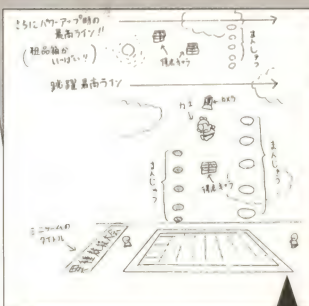 さらにパワーアップ時の
最高ライン!!
(粗品箱が
いっぱい)
得点きゅう
まんじゅう
跳躍最高ライン
カメラ
まんじゅう
得点きゅう
まんじゅう
ミニゲームの
タイトル